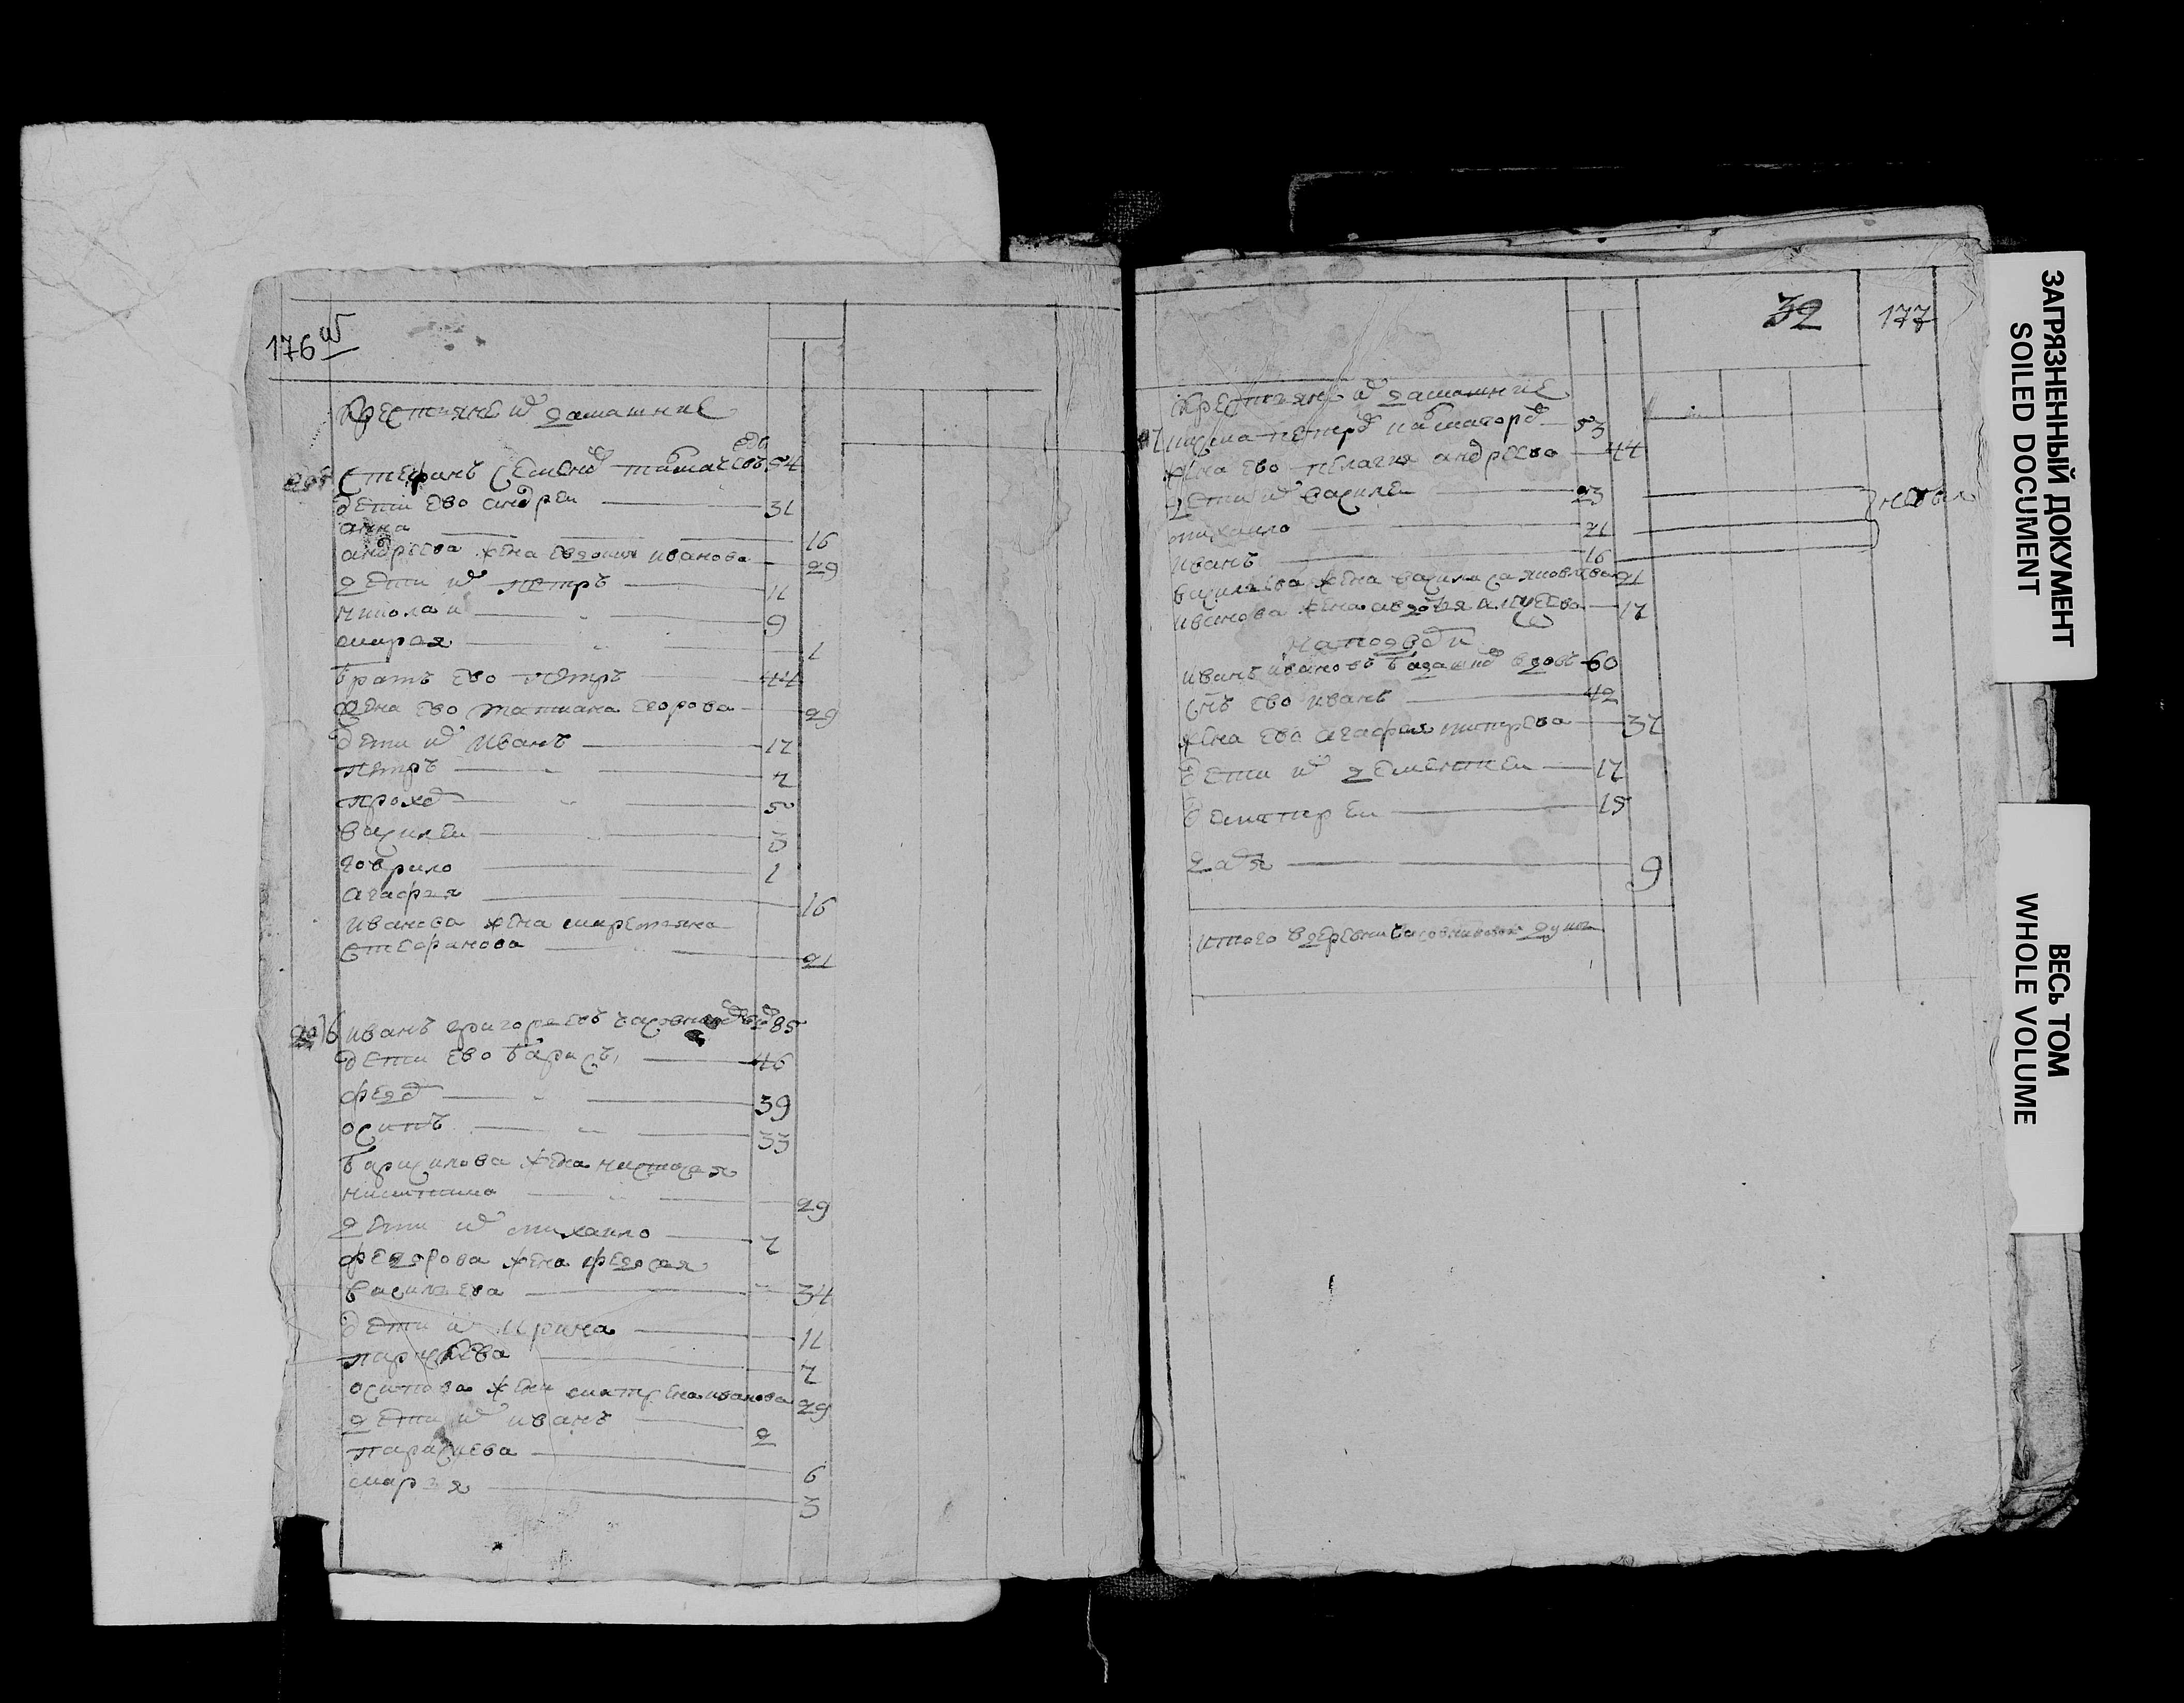 176 об
Крестяне и домашние
Стефанъ Семенов вдов 54
дети ево андреи 31
анна 16
андреева жена евдотия иванова 29
дети их петръ 11
николаи 9
мария 1
братъ ево петръ 44
жена ево татиана егорова 29
дети их иванъ 17
петръ 7
прохор 5
василеи 3
гаврило 1
агафея 16
иванова жена
стефанова 21
иванъ григорьевъ 85
дети ево барисъ 46
федор 39
осипъ 33
барисилова жена настасея
никитина 29
дети их михаило 7
федорова жена федосея
василиева 34
дети их ирина 11
параскева 7
осипова жена матрена иванова 29
дети их иванъ 2
параскева 6
мария 3
32
177
Крестяне и домашние
петров 53
жена ево пелагия андреева 44
дети их василеи 23
михаило 21
иванъ 16
василиева жена василиса яковлева 21
иванова жена авдотя 17
иванъ ивановъ вдовъ 60
снъ ево иванъ 42
жена ево агафия 37
дети их дементеи 17
дмитреи 15
дария 9
итого в деревни душъ
ЗАГРЯЗНЕННЫЙ ДОКУМЕНТ
SOILED DOCUMENT
ВЕСЬ ТОМ
WHOLE VOLUME